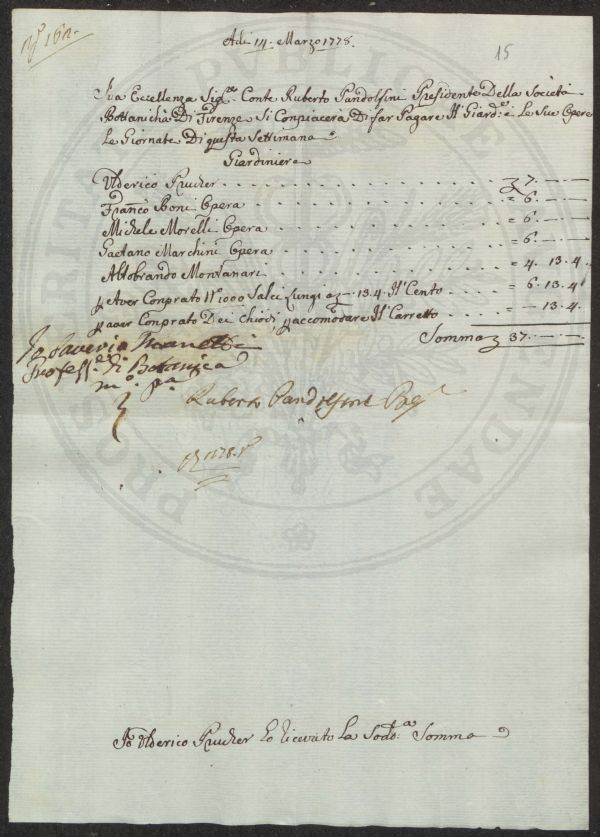 Adi 14. Marzo 1778.
15
Sua Eccellenza Sig.re Conte Ruberto Pandolfini Presidente Della Società
Bottanicha Di Firenze Si Conpiacera Di far Pagare Il Giard.e Le Sue Opere
Le Giornate Di questa Settimana
Giardiniere
Ulderico Prucker . . . . . . . . . . 7. — —
Franco Boni Opera . . . . . . . . . . = 6. — —
Michele Morelli Opera . . . . . . . . . . = 6. — —
Gaetano Marchini Opera . . . . . . . . . . = 6. — —
Aldobrando Montanari . . . . . . . . . . = 4. 13. 4
p Aver Conprato N° 1000 Salci Lungi a — 13.4. Il Cento . . = 6. 13. 4
p aver Conprato Dei Chiodi, p accomodare Il Carretto . . . — 13. 4.
Somma 37. — —
Io Saverio Manetti
Profess.e di Botanica
m.o p.a
Ruberto Pandolfini
Io Ulderico Prucker Ho ricevuto La Sod.a Somma